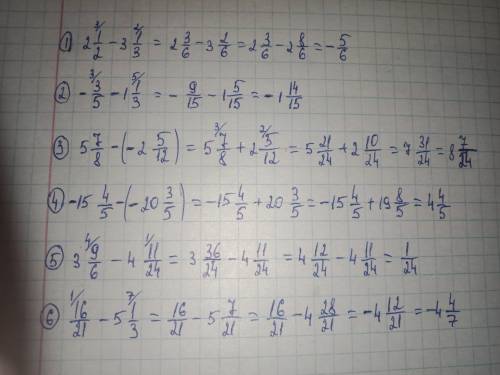 ① 2 3/ 1/2 - 3 2/ 1/3 = 2 3/6 - 3 2/6 = 2 3/6 - 2 8/6 = - 5/6
② - 3/ 3/5 - 1 5/ 1/3 = - 9/15 - 1 5/15 = -1 14/15
③ 5 7/8 - (-2 5/12) = 5 3/ 7/8 + 2 2/ 5/12 = 5 21/24 + 2 10/24 = 7 31/24 = 8 7/24
④ -15 4/5 - (-20 3/5) = -15 4/5 + 20 3/5 = -15 4/5 + 19 8/5 = 4 4/5
⑤ 3 4/ 9/6 - 4 1/ 11/24 = 3 36/24 - 4 11/24 = 4 12/24 - 4 11/24 = 1/24
⑥ 1/ 16/21 - 5 7/ 1/3 = 16/21 - 5 7/21 = 16/21 - 4 28/21 = -4 12/21 = -4 4/7